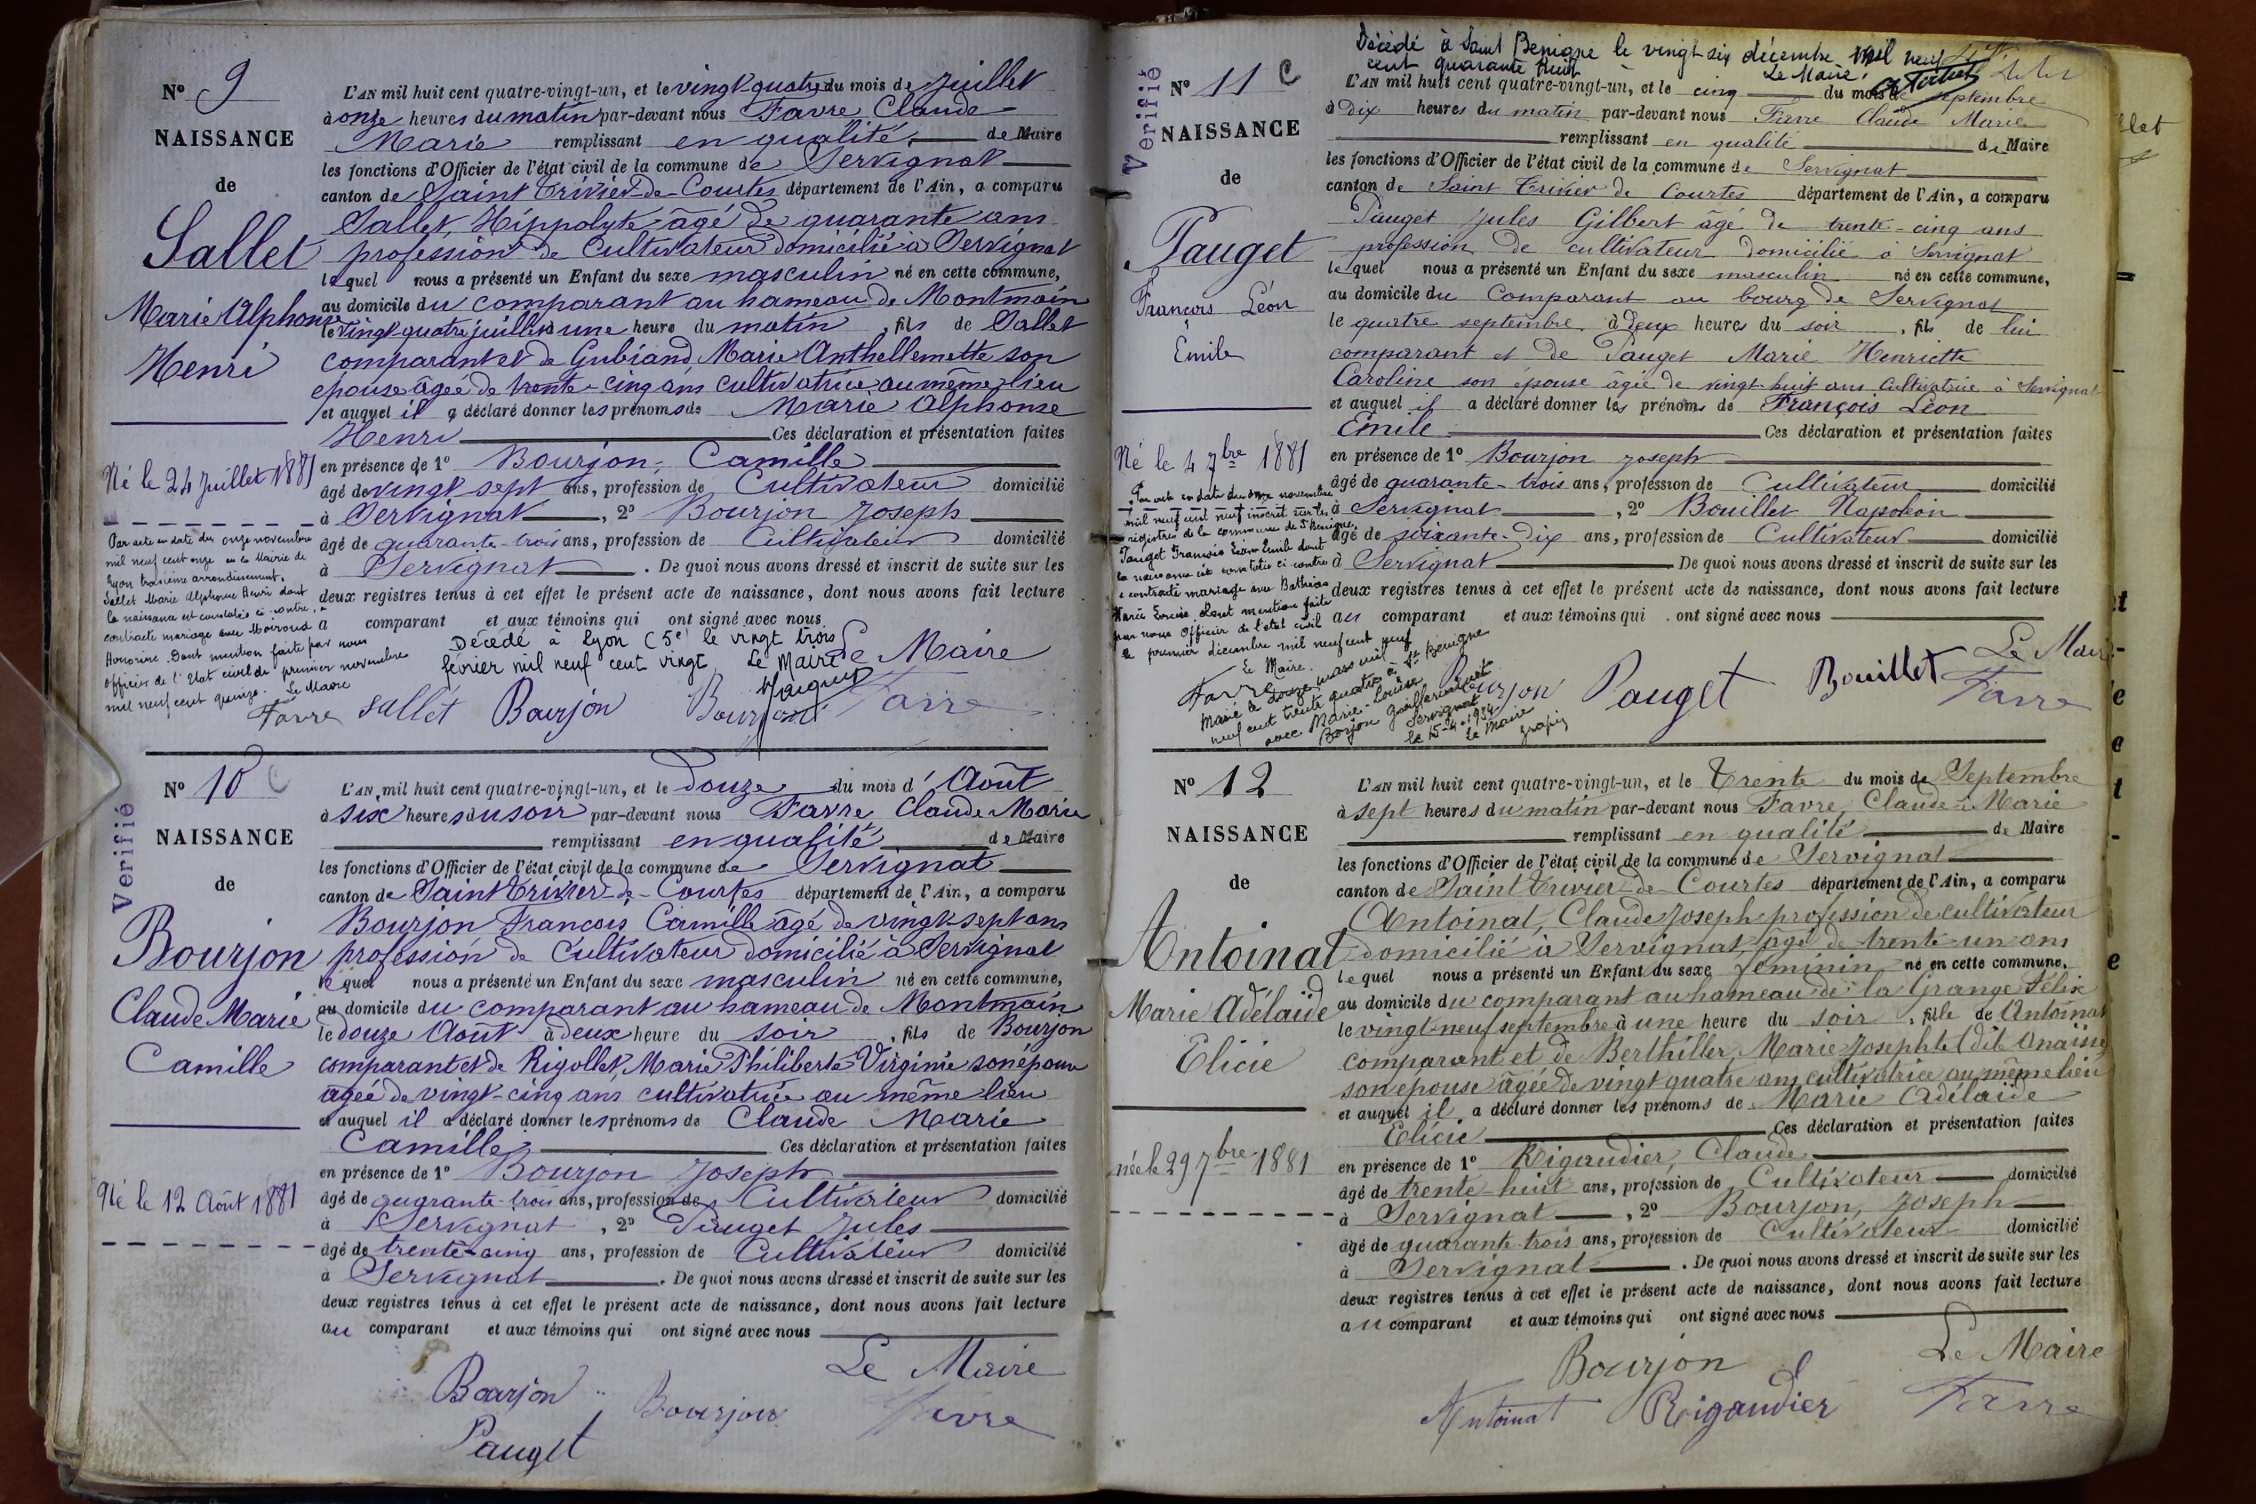 N° 9
NAISSANCE
de
Sallet
Marie Alphonse
Henri
Né le 24 Juillet 1881
Par acte en date du onze novembre
mil neuf cent onze en la Mairie de
Lyon troisième arrondissement,
Sallet Marie Alphonse Henri dont
la naissance est constatée ci-contre, a
contracté mariage avec Moiroud
Honorine. Dont mention faite par nous
officier de l'Etat civil du premier novembre
mil neuf cent quinze. Le Maire
Favre
L'AN mil huit cent quatre-vingt-un, et le vingt quatre du mois de Juillet
à onze heures du matin par-devant nous Favre Claude
Marie remplissant en qualité de Maire
les fonctions d'Officier de l'état civil de la commune de Servignat
canton de Saint Trivier de Courtes département de l'Ain, a comparu
Sallet, Hippolyte âgé de quarante ans
profession de Cultivateur domicilié à Servignat
lequel nous a présenté un Enfant du sexe masculin né en cette commune,
au domicile du comparant au hameau de Montmain
le vingt quatre juillet à une heure du matin, fils de Sallet
comparant et de Gubiand Marie Anthellemette son
épouse âgée de trente-cinq ans cultivatrice au même lieu
et auquel il a déclaré donner les prénoms de Marie Alphonse
Henri Ces déclaration et présentation faites
en présence de 1° Bourjon, Camille
âgé de vingt sept ans, profession de Cultivateur domicilié
à Servignat, 2° Bourjon Joseph
âgé de quarante-trois ans, profession de Cultivateur domicilié
à Servignat. De quoi nous avons dressé et inscrit de suite sur les
deux registres tenus à cet effet le présent acte de naissance, dont nous avons fait lecture
à comparant et aux témoins qui ont signé avec nous
Décédé à Lyon (5e) le vingt trois
février mil neuf cent vingt Le Maire
Le Maire
Sallet Bourjon Bourjon Favre
N° 10 C
Verifié
NAISSANCE
de
Bourjon
Claude Marie
Camille
Né le 12 Août 1881
L'AN mil huit cent quatre-vingt-un, et le Douze du mois d'Août
à six heures du soir par-devant nous Favre, Claude Marie
remplissant en qualité de Maire
les fonctions d'Officier de l'état civil de la commune de Servignat
canton de Saint Trivier de Courtes département de l'Ain, a comparu
Bourjon Francois Camille âgé de vingt-sept ans
profession de Cultivateur domicilié à Servignat
lequel nous a présenté un Enfant du sexe masculin né en cette commune,
au domicile du comparant au hameau de Montmain
le douze Août à deux heure du soir, fils de Bourjon
comparant et de Rigollet, Marie Philiberte Virginie son épouse
âgée de vingt-cinq ans cultivatrice au même lieu
et auquel il a déclaré donner les prénoms de Claude Marie
Camille Ces déclaration et présentation faites
en présence de 1° Bourjon Joseph
âgé de quarante-trois ans, profession de Cultivateur domicilié
à Servignat, 2° Pauget Jules
âgé de trente-cinq ans, profession de Cultivateur domicilié
à Servignat. De quoi nous avons dressé et inscrit de suite sur les
deux registres tenus à cet effet le présent acte de naissance, dont nous avons fait lecture
au comparant et aux témoins qui ont signé avec nous
Le Maire
Bourjon Bourjon Favre
Pauget
Décédé à Saint Benigne le vingt six décembre mil neuf
cent quarante huit
Le Maire
N° 11 C
Verifié
NAISSANCE
de
Pauget
Francois Léon
Emile
Né le 4 7bre 1881
Par acte en date du onze novembre
mil neuf cent neuf inscrit sur les
registres de la commune de St Benigne,
Pauget Francois Léon Emile dont
la naissance est constatée ci contre
a contracté mariage avec Bathias
Marie Louise. Dont mention faite
par nous Officier de l'état civil
le premier décembre mil neuf cent neuf
Le Maire.
Favre
Marié le douze mars mil
neuf cent trente quatre à St Benigne
avec Marie-Louise
Borjon
Servignat
le 15-4-1934
Le Maire
L'AN mil huit cent quatre-vingt-un, et le cinq du mois de septembre
à Dix heures du matin par-devant nous Favre Claude Marie
remplissant en qualité de Maire
les fonctions d'Officier de l'état civil de la commune de Servignat
canton de Saint Trivier de Courtes département de l'Ain, a comparu
Pauget Jules Gilbert âgé de trente-cinq ans
profession de cultivateur domicilié à Servignat
lequel nous a présenté un Enfant du sexe masculin né en cette commune,
au domicile du comparant au bourg de Servignat
le quatre septembre à deux heures du soir, fils de lui
comparant et de Pauget Marie Henriette
Caroline son épouse âgée de vingt huit ans Cultivatrice à Servignat
et auquel il a déclaré donner les prénoms de François Léon
Emile Ces déclaration et présentation faites
en présence de 1° Bourjon Joseph
âgé de quarante-trois ans, profession de Cultivateur domicilié
à Servignat, 2° Bouillet Napoléon
âgé de soixante-dix ans, profession de Cultivateur domicilié
à Servignat De quoi nous avons dressé et inscrit de suite sur les
deux registres tenus à cet effet le présent acte de naissance, dont nous avons fait lecture
au comparant et aux témoins qui ont signé avec nous
Le Maire
Bourjon Pauget Bouillet Favre
N° 12
NAISSANCE
de
Antoinat
Marie Adélaïde
Elicie
née le 29 7bre 1881
L'AN mil huit cent quatre-vingt-un, et le Trente du mois de Septembre
à sept heures du matin par-devant nous Favre, Claude Marie
remplissant en qualité de Maire
les fonctions d'Officier de l'état civil de la commune de Servignat
canton de Saint Trivier de Courtes département de l'Ain, a comparu
Antoinat, Claude Joseph profession de cultivateur
domicilié à Servignat, âgé de trente-un ans
lequel nous a présenté un Enfant du sexe féminin né en cette commune,
au domicile du comparant au hameau de la Grange Félix
le vingt-neuf septembre à une heure du soir, fille de Antoinat
comparant et de Berthiller, Marie Josephte (dite Anaïse)
son épouse âgée de vingt quatre ans cultivatrice au même lieu
et auquel il a déclaré donner les prénoms de Marie Adélaïde
Elicie Ces déclaration et présentation faites
en présence de 1° Rigaudier, Claude
âgé de trente-huit ans, profession de Cultivateur domicilié
à Servignat, 2° Bourjon, Joseph
âgé de quarante-trois ans, profession de Cultivateur domicilié
à Servignat. De quoi nous avons dressé et inscrit de suite sur les
deux registres tenus à cet effet le présent acte de naissance, dont nous avons fait lecture
au comparant et aux témoins qui ont signé avec nous
Le Maire
Bourjon
Antoinat Rigaudier Favre